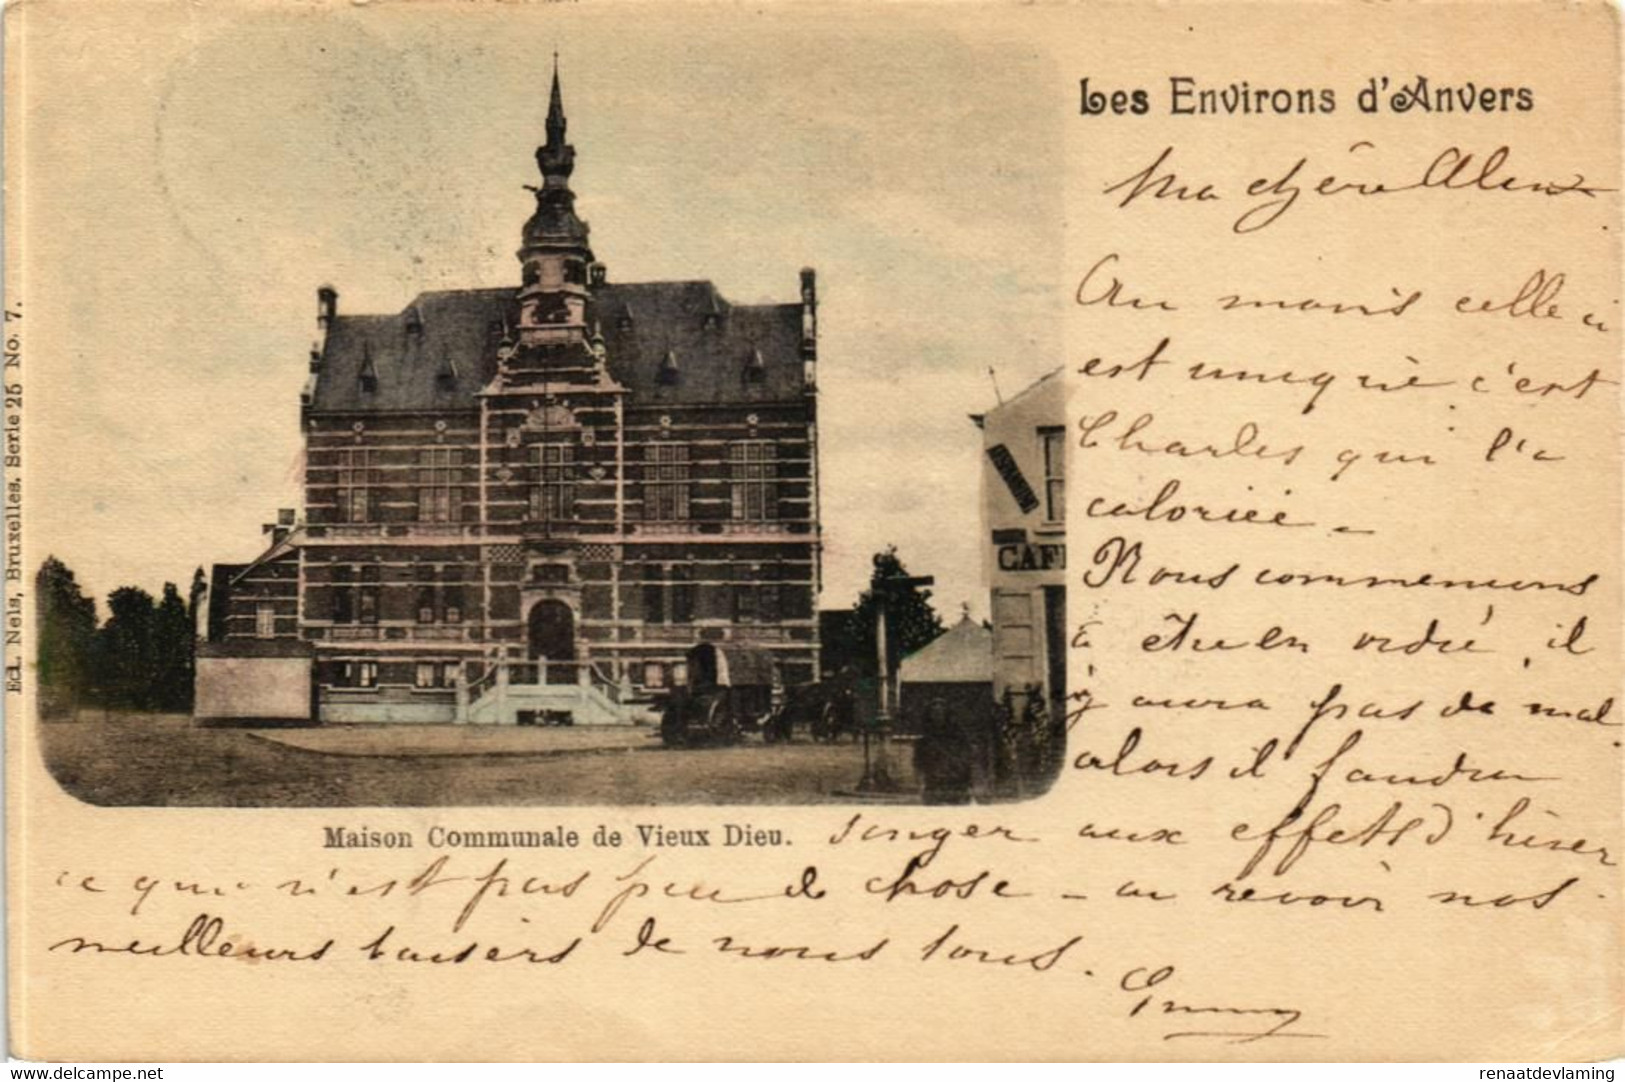 Les Environs d'Anvers
Ma chère Alen
Au moins celle ci
est unique c'est
Charles qui l'a
coloriée -
Nous commençons
à être en ordre, il
y aura pas de mal
alors il faudra
songer aux effets d'hiver
ce qui n'est pas peu de chose - au revoir nos
meilleurs baisers de nous tous.
Maison Communale de Vieux Dieu.
Ed. Nels, Bruxelles. Serie 25 No. 7.
CAF
renaatdevlaming